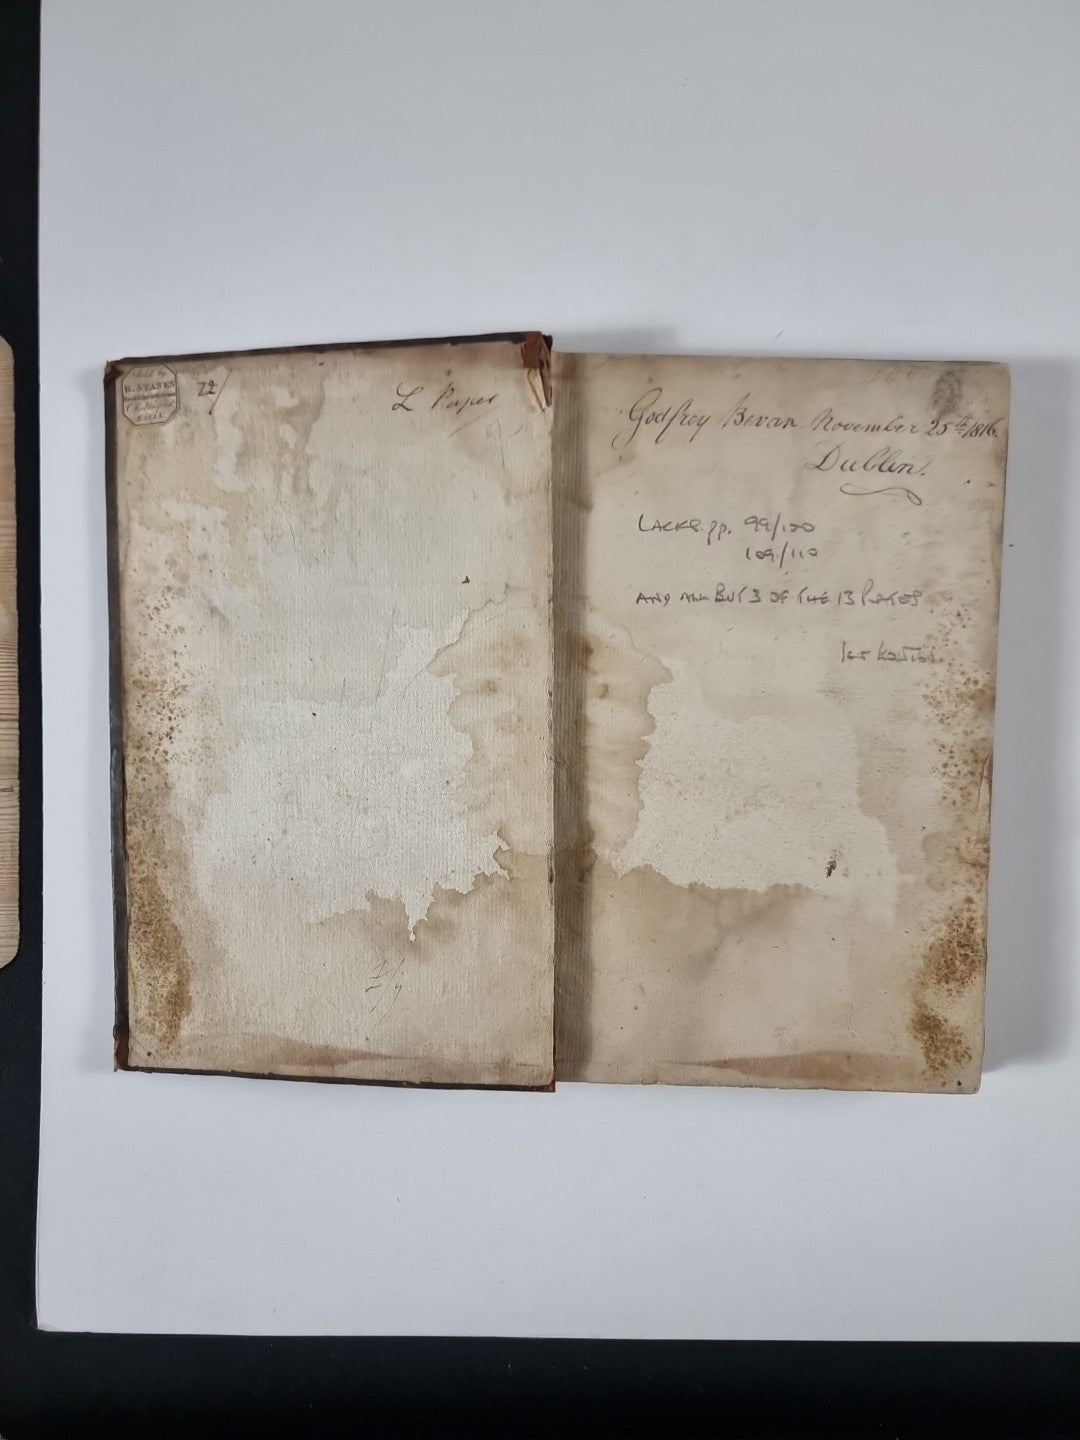 Sold by
R. STANES
72/
L Paper
Godfrey Bevan. November 25th 1816.
Dublin.
LACKS. pp. 99/100
109/110
AND ALL BUT 3 OF THE 13 PLATES